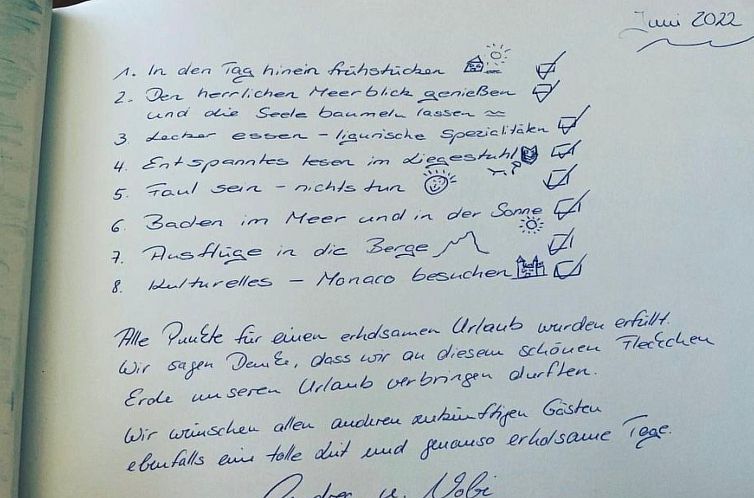 Juni 2022
1. In den Tag hinein frühstücken
2. Den herrlichen Meerblick genießen
und die Seele baumeln lassen
3. Lecker essen - ligurische Spezialitäten
4. Entspanntes lesen im Liegestuhl
5. Faul sein - nichts tun
6. Baden im Meer und in der Sonne
7. Ausflüge in die Berge
8. Kulturelles - Monaco besuchen
Alle Punkte für einen erholsamen Urlaub wurden erfüllt.
Wir sagen Danke, dass wir an diesem schönen Fleckchen
Erde unseren Urlaub verbringen durften.
Wir wünschen allen anderen zukünftigen Gästen
ebenfalls eine tolle Zeit und genauso erholsame Tage.
u.